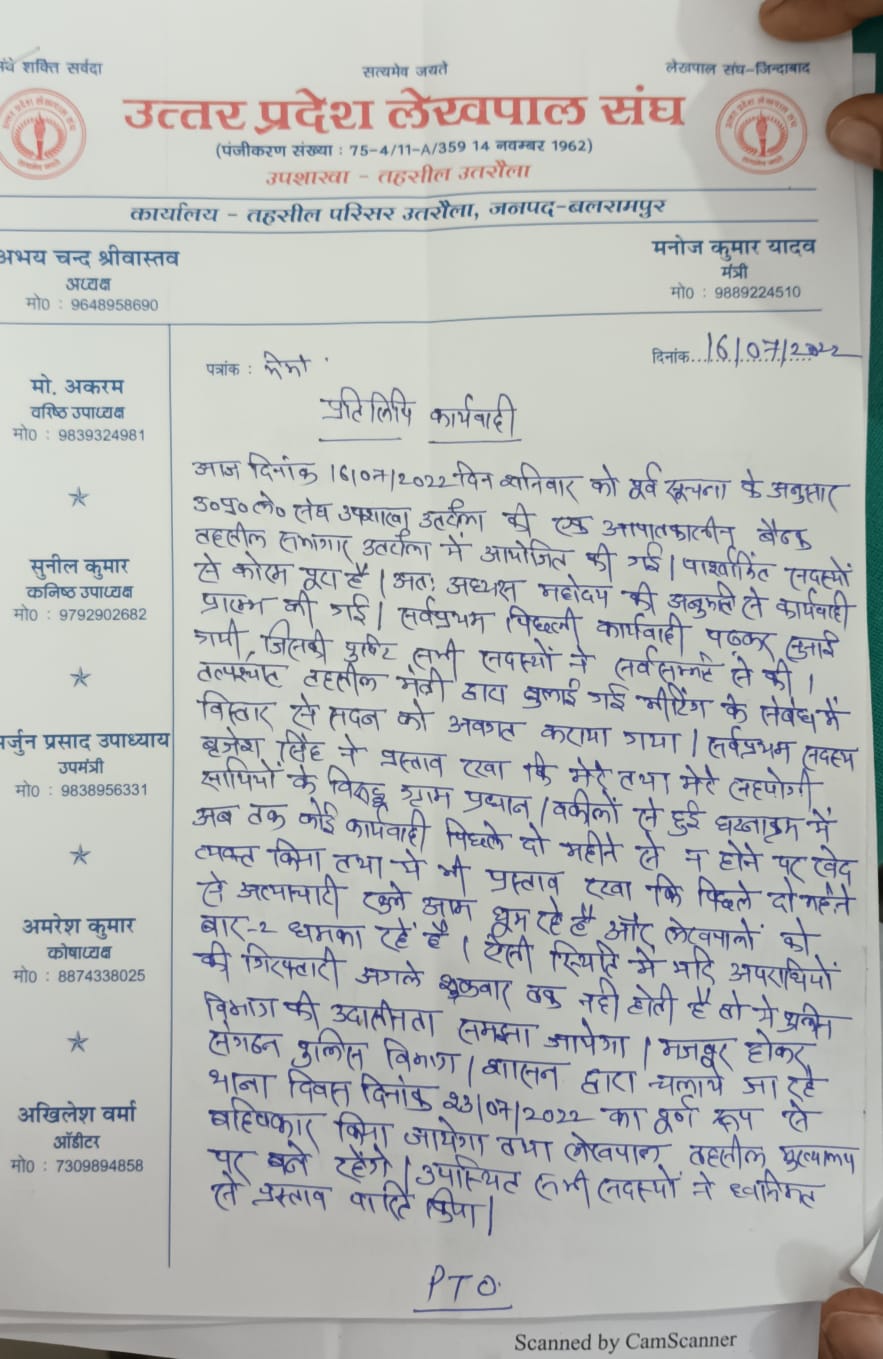 संघे शक्ति सर्वदा
सत्यमेव जयते
लेखपाल संघ-जिन्दाबाद
उत्तर प्रदेश लेखपाल संघ
(पंजीकरण संख्या : 75-4/11-A/359 14 नवम्बर 1962)
उपशाखा - तहसील उतरौला
कार्यालय - तहसील परिसर उतरौला, जनपद-बलरामपुर
अभय चन्द श्रीवास्तव
अध्यक्ष
मो0 : 9648958690
मनोज कुमार यादव
मंत्री
मो0 : 9889224510
मो. अकरम
वरिष्ठ उपाध्यक्ष
मो0 : 9839324981
सुनील कुमार
कनिष्ठ उपाध्यक्ष
मो0 : 9792902682
र्जुन प्रसाद उपाध्याय
उपमंत्री
मो0 : 9838956331
अमरेश कुमार
कोषाध्यक्ष
मो0 : 8874338025
अखिलेश वर्मा
ऑडीटर
मो0 : 7309894858
पत्रांक :
दिनांक 16/07/2022
प्रतिलिपि कार्यवाही
आज दिनांक 16/07/2022 दिन शनिवार को पूर्व सूचना के अनुसार
उ०प्र०ले० संघ उपशाखा उतरौला की एक आपातकालीन बैठक
तहसील सभागार उतरौला में आयोजित की गई। पार्श्वांकित सदस्यों
से कोरम पूरा है। अतः अध्यक्ष महोदय की अनुमति से कार्यवाही
प्रारम्भ की गई। सर्वप्रथम पिछली कार्यवाही पढ़कर सुनाई
गयी, जिसकी पुष्टि सभी सदस्यों ने सर्वसम्मति से की।
तत्पश्चात तहसील मंत्री द्वारा बुलाई गई मीटिंग के संबंध में
विस्तार से सदन को अवगत कराया गया। सर्वप्रथम सदस्य
बृजेश सिंह ने प्रस्ताव रखा कि मेरे तथा मेरे सहयोगी
साथियों के विरुद्ध ग्राम प्रधान/वकीलों से हुई घटनाक्रम में
अब तक कोई कार्यवाही पिछले दो महीने से न होने पर खेद
व्यक्त किया तथा ये भी प्रस्ताव रखा कि पिछले दो महीने
से अत्याचारी खुले आम घूम रहे है और लेखपालों को
बार-2 धमका रहें है। ऐसी स्थिति मे यदि अपराधियों
की गिरफ्तारी अगले शुक्रवार तक नही होती है तो ये पुलिस
विभाग की उदासीनता समझा जायेगा। मजबूर होकर
संगठन पुलिस विभाग/शासन द्वारा चलाये जा रहे
थाना दिवस दिनांक 23/07/2022 का पूर्ण रूप से
बहिष्कार किया जायेगा तथा लेखपाल तहसील मुख्यालय
पर बने रहेंगे। उपस्थित सभी सदस्यों ने ध्वनिमत
से प्रस्ताव पारित किया।
PTO.
Scanned by CamScanner